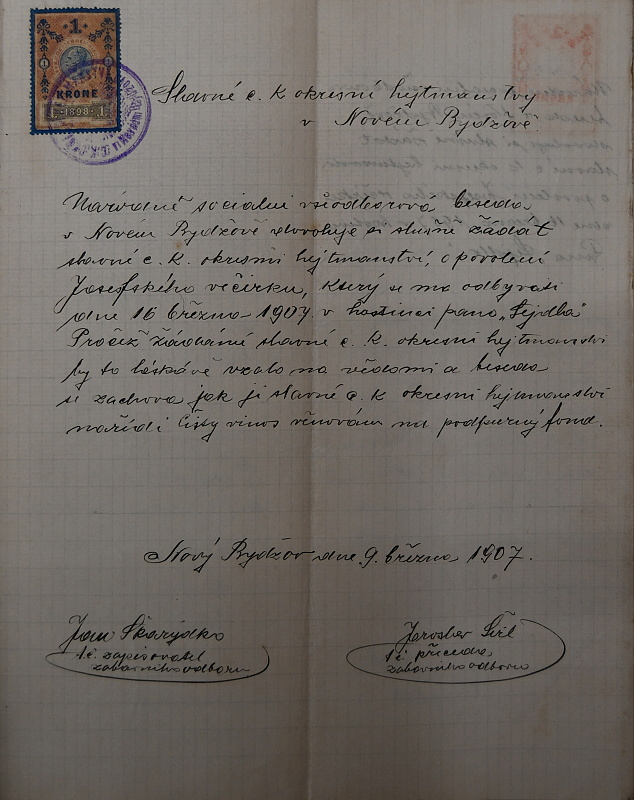 1
KRONE
1 1898 1
Slavné c. k okresní hejtmanstvy
v Novém Bydžově
Národně sociální všeodborová beseda
v Novém Bydžově dovoluje si slušně žádat
slavné c. k. okresní hejtmanství, o povolení
Josefského večírku, který se má odbyvati
dne 16 března 1907 v hostinci pana „Šejdla"
Pročež žádáné slavné c. k. okresní hejtmanství
by to láskavě vzalo na vědomí a beseda
se zachova jak ji slavné c. k okresní hejtmanství
nařídí čistý vinos věnován na podpurný fond.
Nový Bydžov dne 9. března 1907.
Jan Škarydko
t. č. zapisovatel
zabavního odboru
Jaroslav
t. č. předseda
zabavního odboru